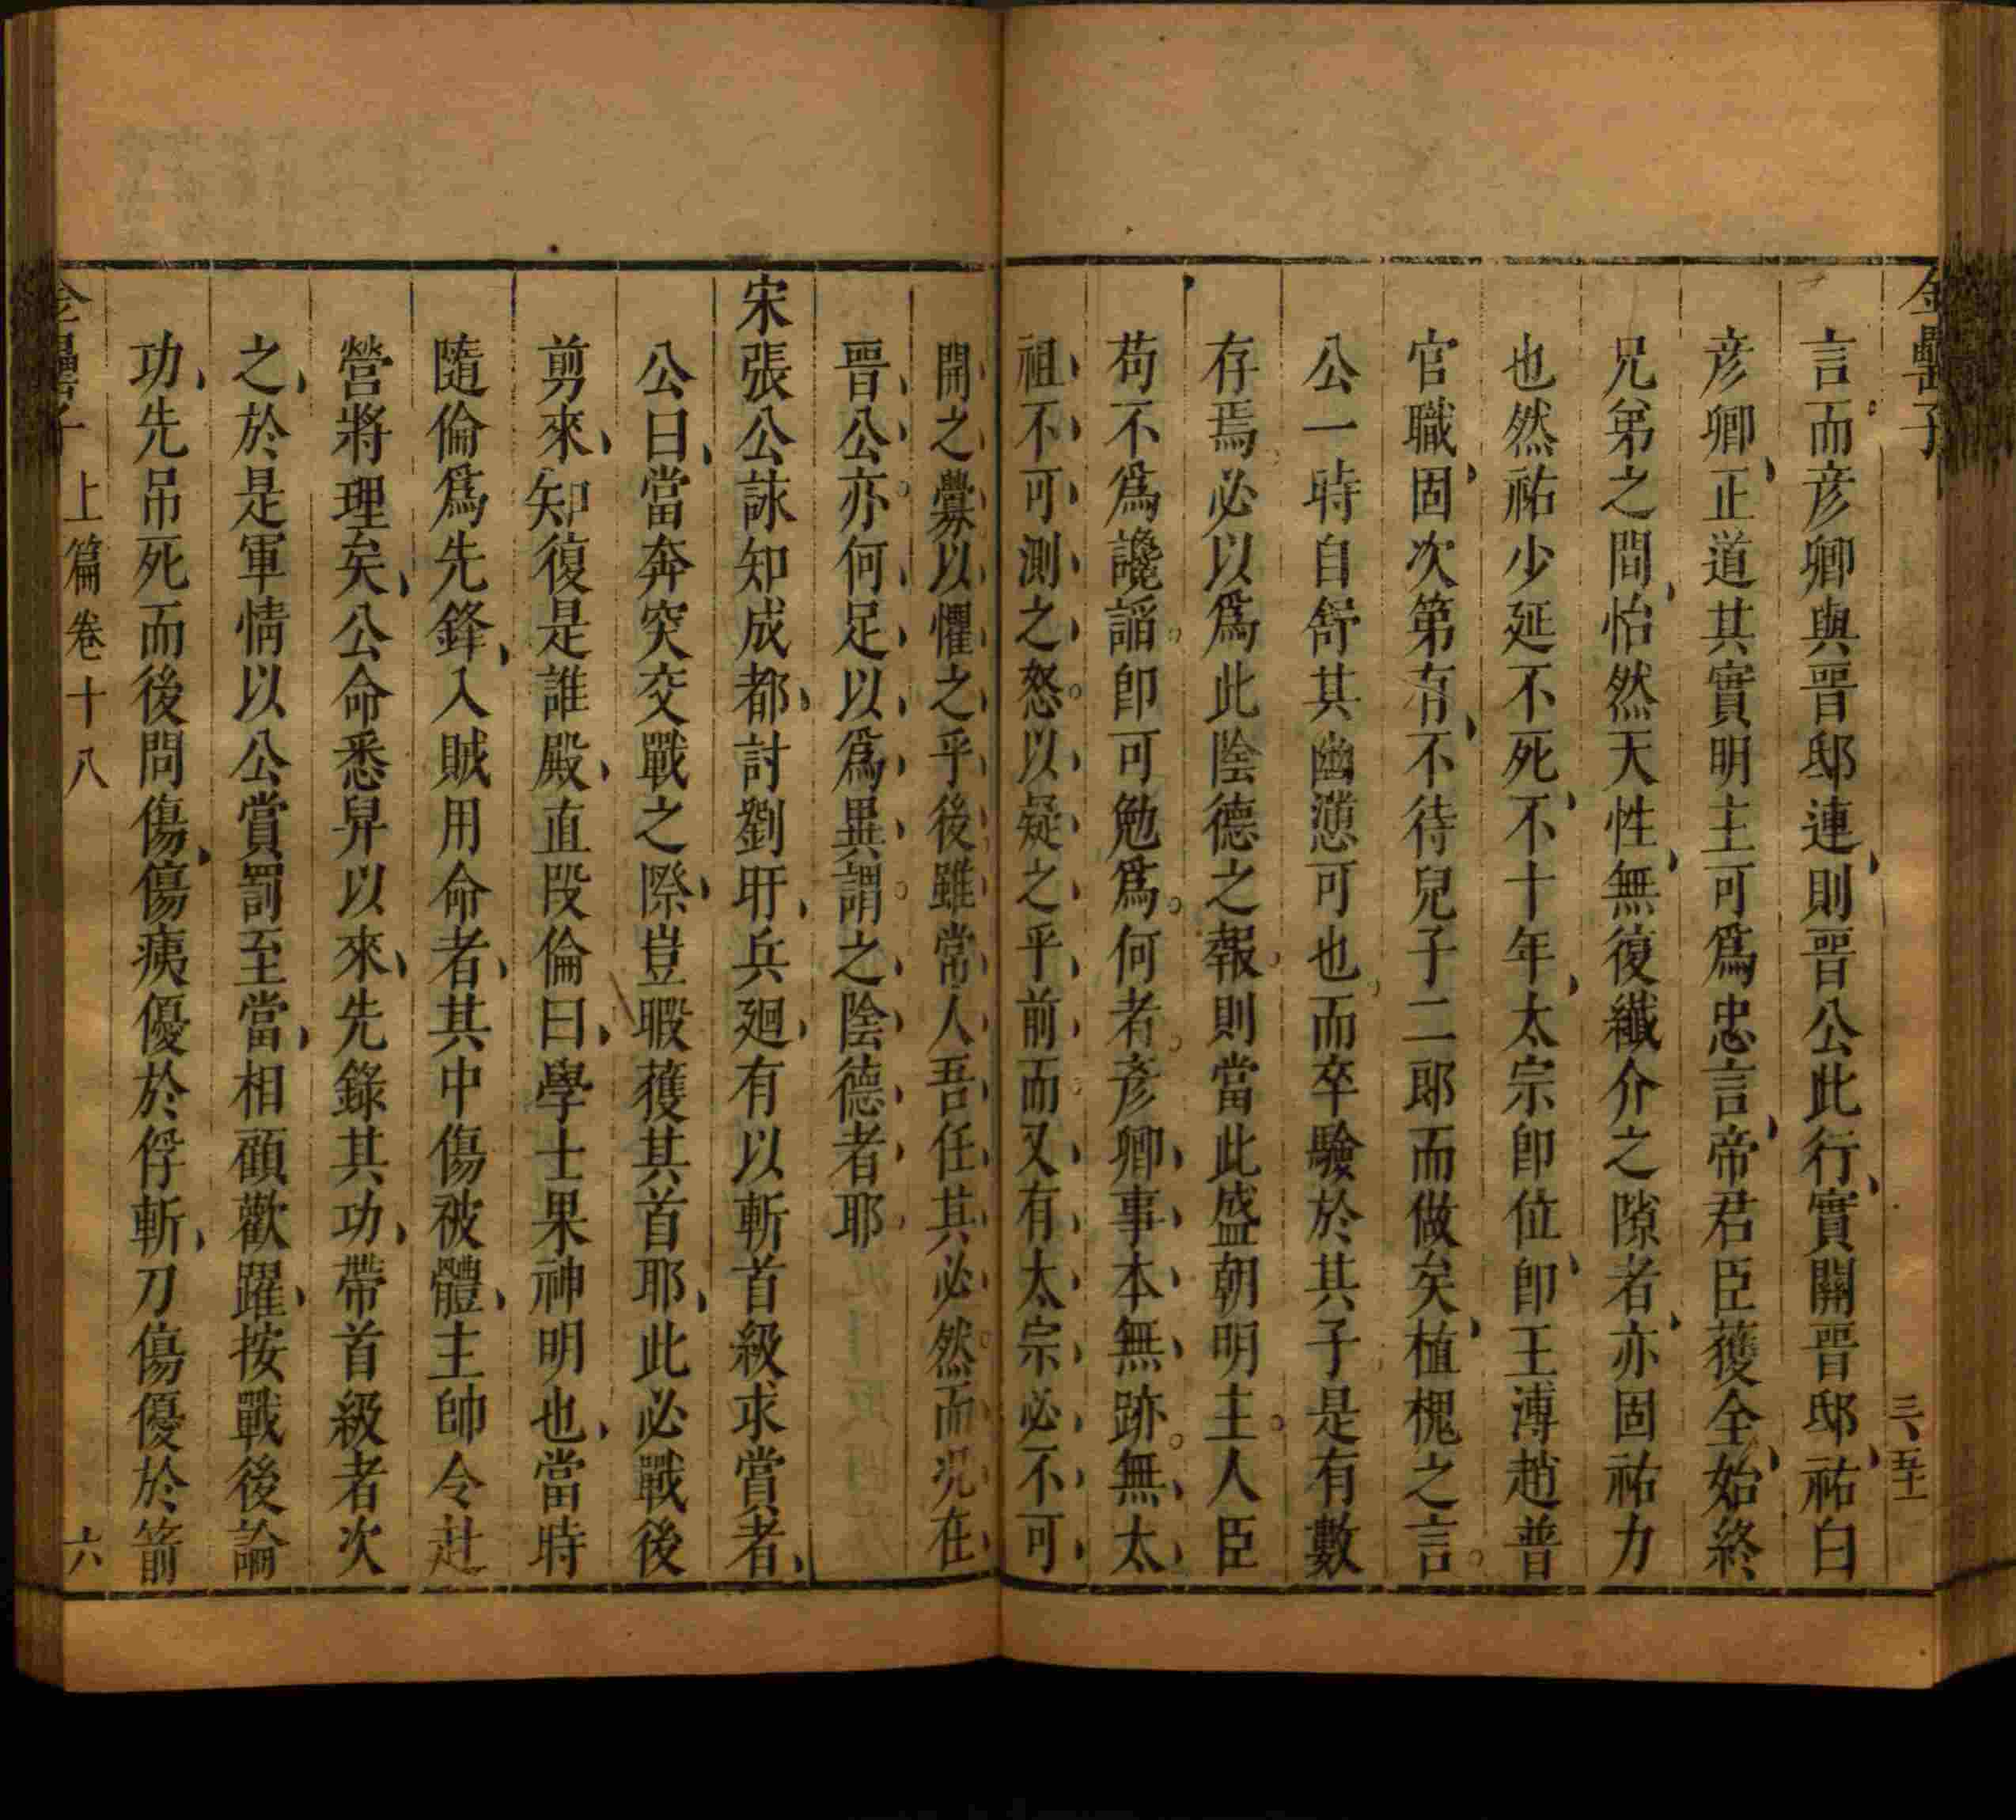 金罍子
三、五十一
言而彦卿與晋邸連則晋公此行實關晋邸祐白
彦卿正道其實明主可爲忠言帝君臣獲全始終
兄弟之間怡然天性無復纖介之隙者亦固祐力
也然祐少延不死不十年太宗卽位卽王溥趙普
官職固次第有不待兒子二郎而做矣植槐之言
公一時自舒其幽懣可也而卒驗於其子是有數
存焉必以爲此陰德之報則當此盛朝明主人臣
苟不爲讒謟卽可勉爲何者彦卿事本無跡無太
祖不可測之怒以疑之乎前而又有太宗必不可
開之釁以懼之乎後雖常人吾任其必然而况在
晋公亦何足以爲異謂之陰德者耶
宋張公詠知成都討劉旰兵廻有以斬首級求賞者
公曰當奔突交戰之際豈暇獲其首耶此必戰後
剪來知復是誰殿直段倫曰學士果神明也當時
隨倫爲先鋒入賊用命者其中傷被體主帥令赴
營將理矣公命悉舁以來先錄其功帶首級者次
之於是軍情以公賞罰至當相顧歡躍按戰後論
功先吊死而後問傷傷痍優於俘斬刀傷優於箭
金罍子 上篇卷十八 六